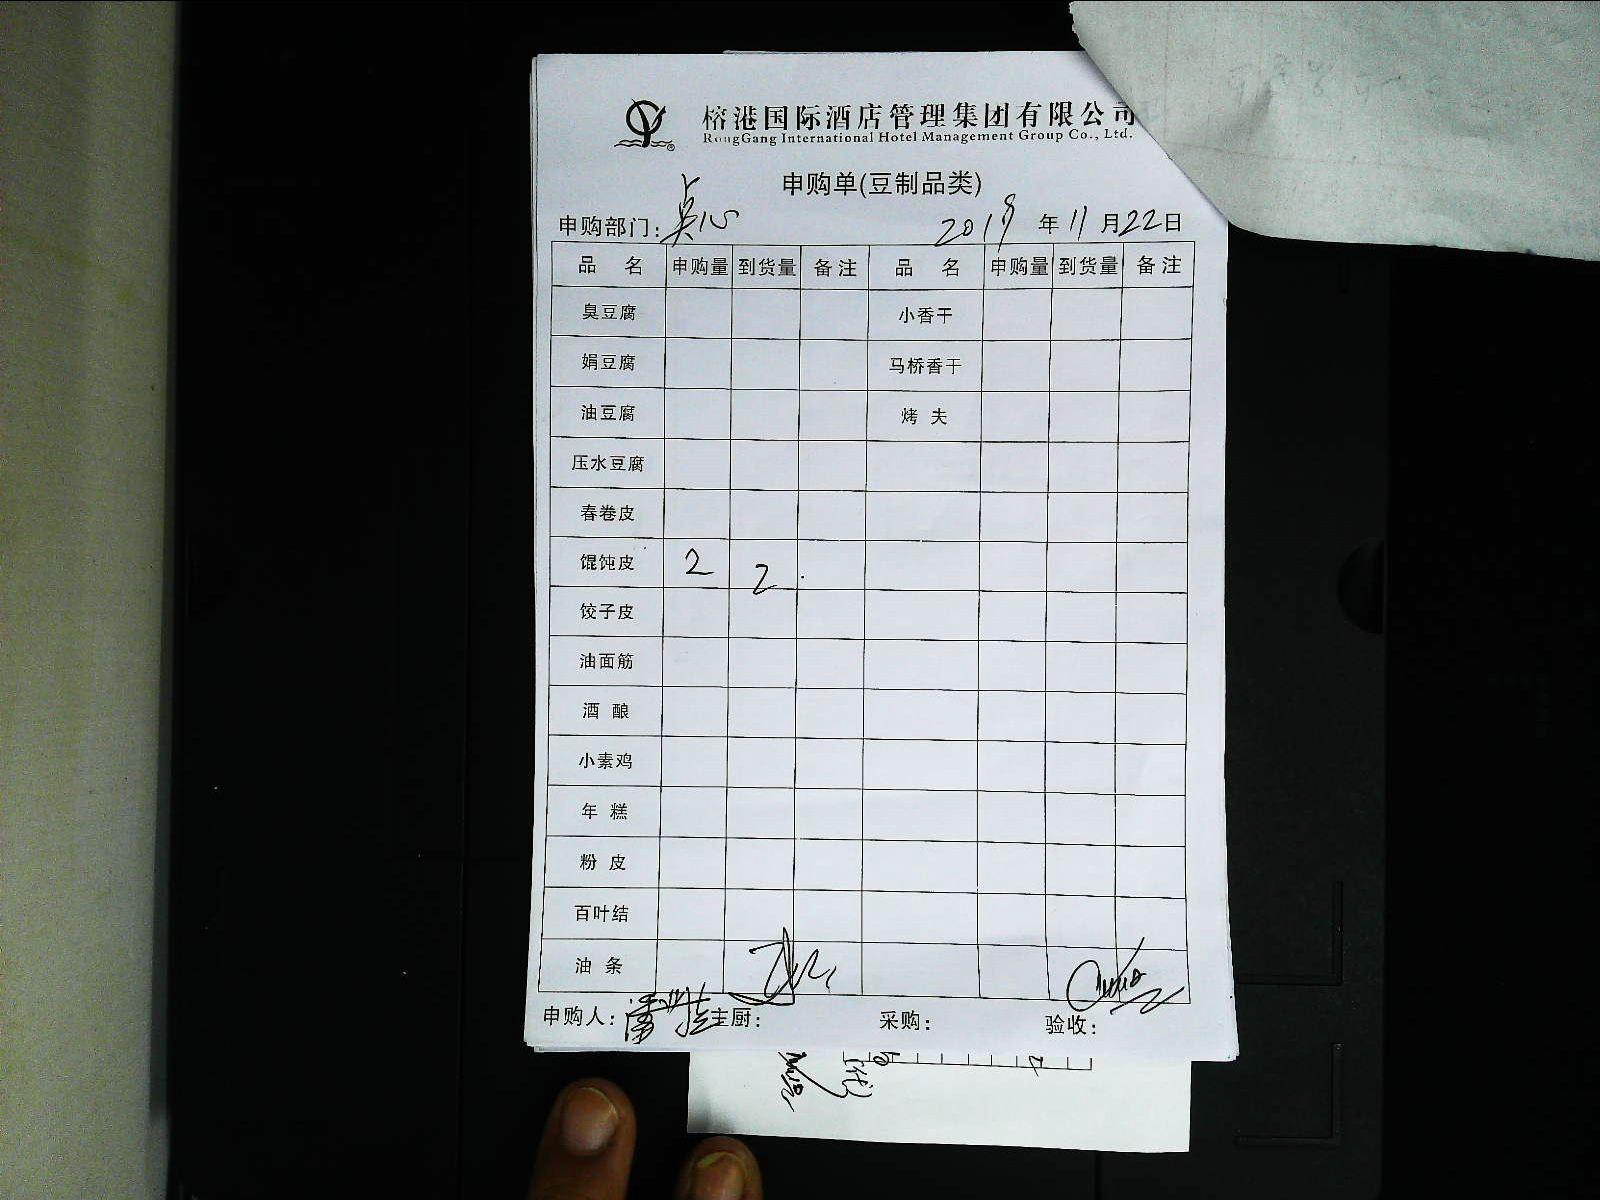 榕港国际酒店管理集团有限公司
RongGang International Hotel Management Group Co., Ltd.
申购单(豆制品类)
申购部门: 点心 2019 年 11 月 22 日
品 名 申购量 到货量 备注 品 名 申购量 到货量 备注
臭豆腐 小香干
娟豆腐 马桥香干
油豆腐 烤 夫
压水豆腐
春卷皮
馄饨皮 2 2
饺子皮
油面筋
酒 酿
小素鸡
年 糕
粉 皮
百叶结
油 条
申购人: 主厨: 采购: 验收: